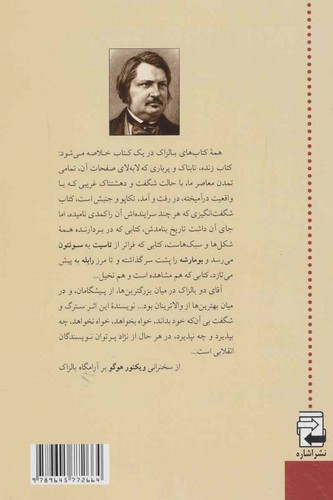 همهٔ کتاب‌های بالزاک در یک کتاب خلاصه می‌شود:
کتاب زنده، تابناک و پرباری که لابه‌لای صفحات آن، تمامی
تمدن معاصر ما، با حالت شگفت و دهشتناک غریبی که با
واقعیت درآمیخته، در رفت و آمد، تکاپو و جنبش است، کتاب
شگفت‌انگیزی که هر چند سراینده‌اش آن را کمدی نامیده، اما
جای آن داشت تاریخ بنامدش، کتابی که در بردارنده همهٔ
شکل‌ها و سبک‌هاست، کتابی که فراتر از تاسیت به سوئتون
می‌رسد و بومارشه را پشت سر گذاشته و تا مرز رابله به پیش
می‌تازد، کتابی که هم مشاهده است و هم تخیل...
آقای دو بالزاک در میان بزرگترین‌ها، از پیشگامان، و در
میان بهترین‌ها از والاترینان بود... نویسندهٔ این اثر سترگ و
شگفت بی آن‌که خود بداند، خواه بخواهد، خواه نخواهد، چه
بپذیرد و چه نپذیرد، در هر حال از نژاد پرتوان نویسندگان
انقلابی است...
از سخنرانی ویکتور هوگو بر آرامگاه بالزاک
نشر اشاره
9789645772664